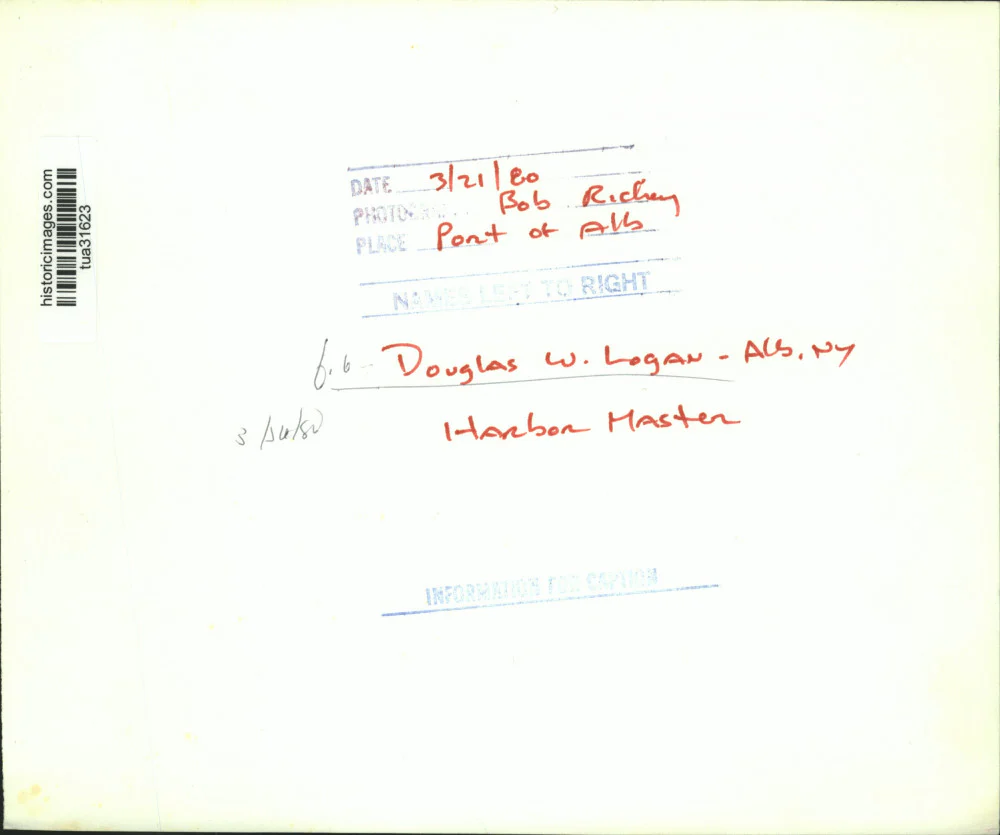 historicimages.com
tua31623
DATE 3/21/80
PHOTOGR Bob Richey
PLACE Port of Alb
NAMES LEFT TO RIGHT
Douglas W. Logan - Alb, NY
3/ /80
Harbor Master
INFORMATION FOR CAPTION